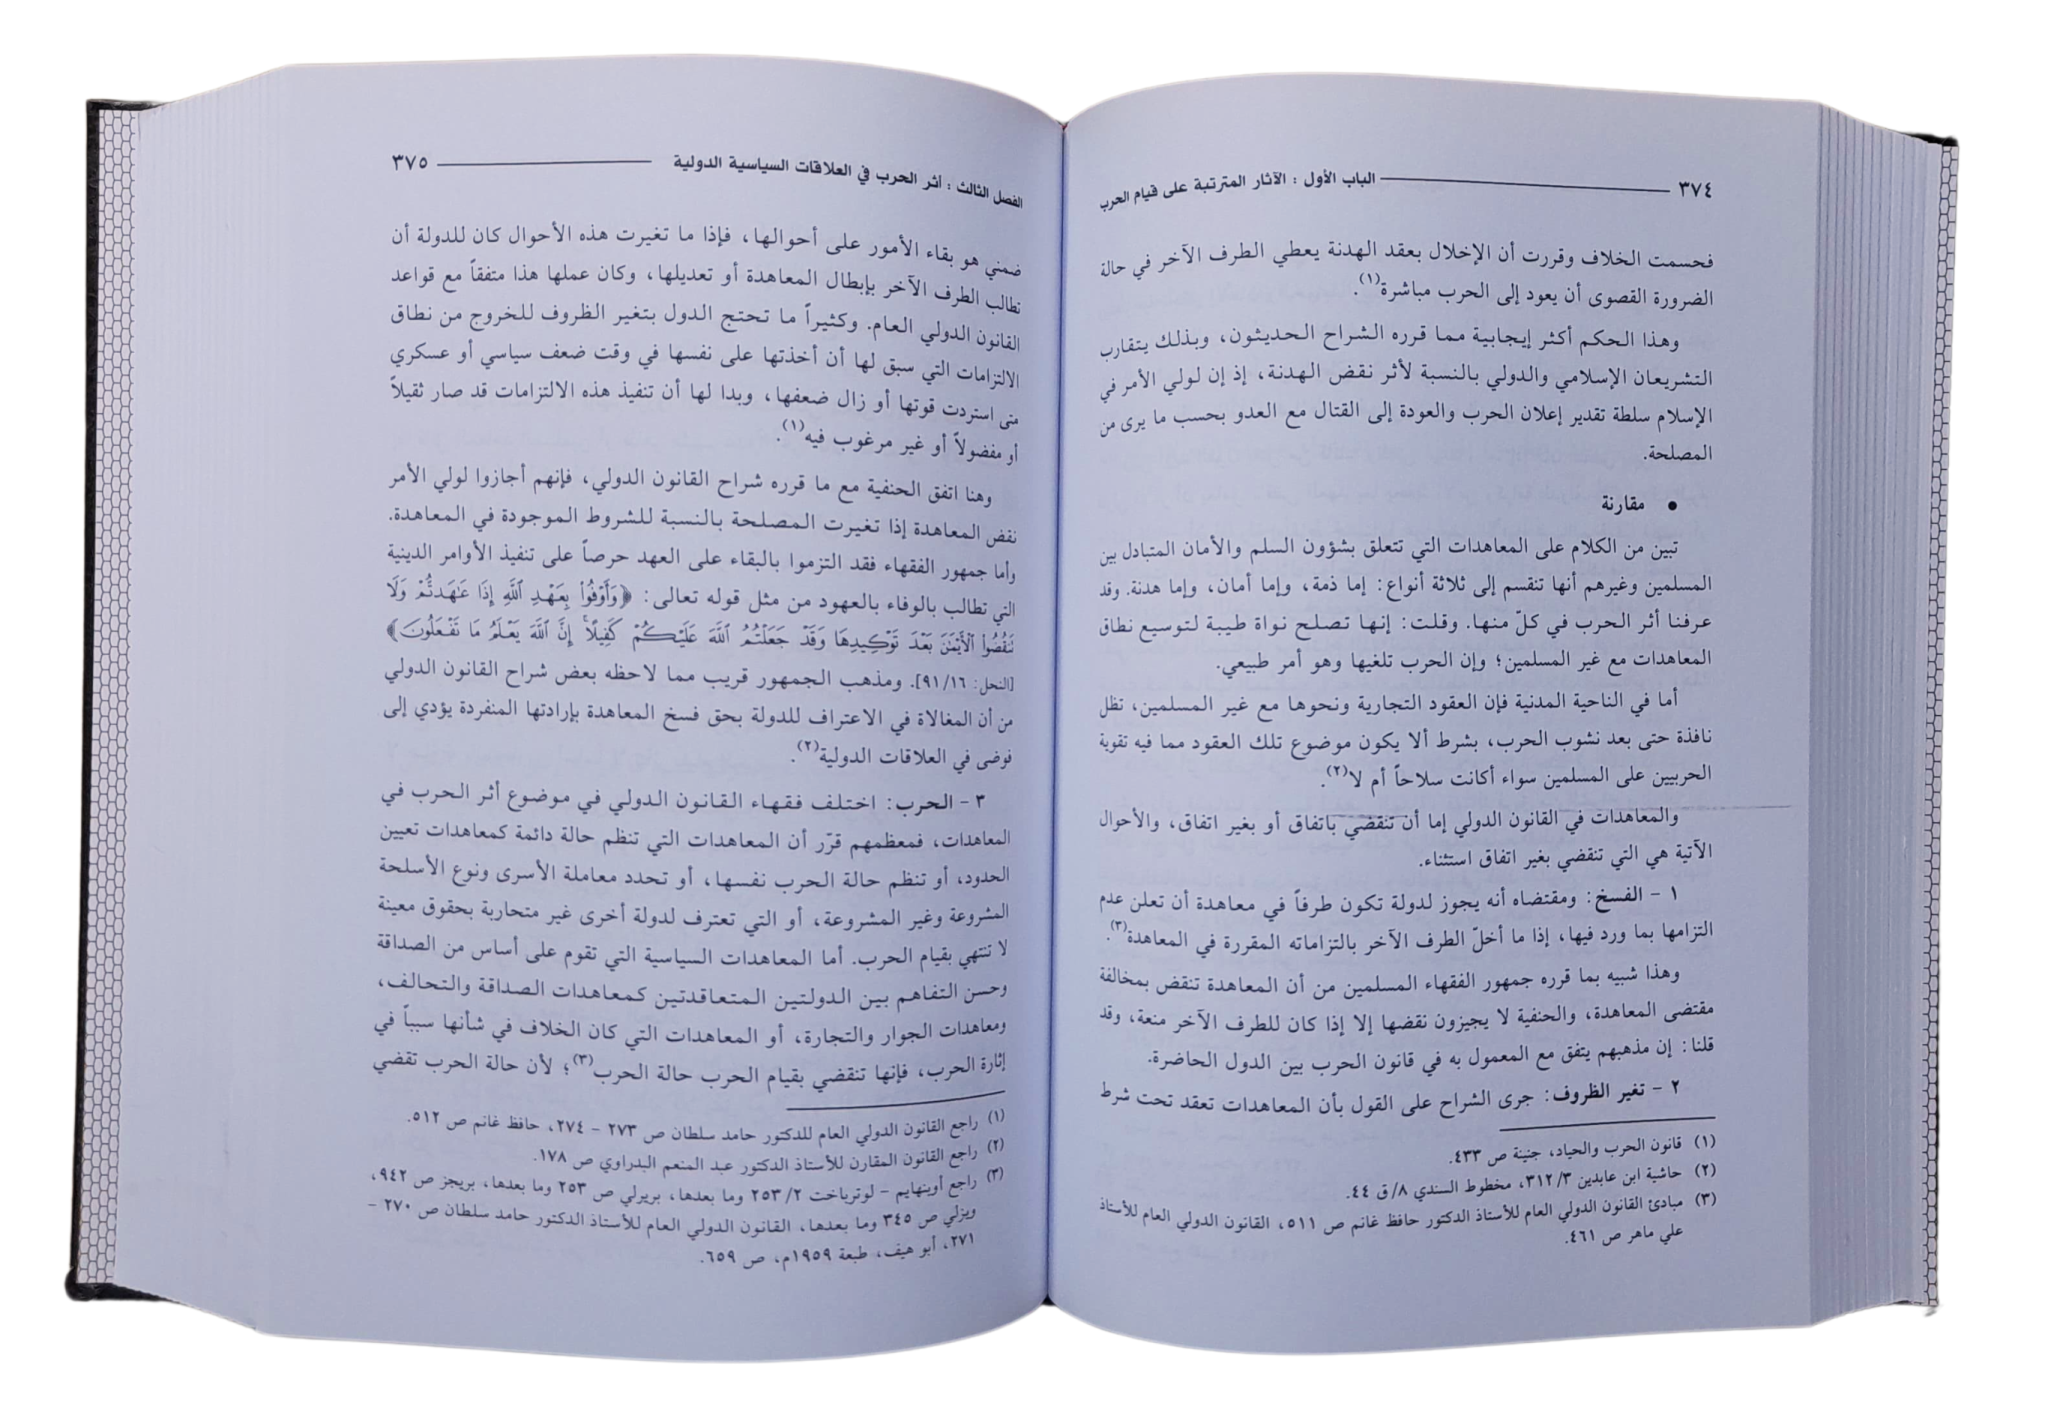 ٣٧٤ الباب الأول : الآثار المترتبة على قيام الحرب
فحسمت الخلاف وقررت أن الإخلال بعقد الهدنة يعطي الطرف الآخر في حالة
الضرورة القصوى أن يعود إلى الحرب مباشرة(١).
وهذا الحكم أكثر إيجابية مما قرره الشراح الحديثون، وبذلك يتقارب
التشريعان الإسلامي والدولي بالنسبة لأثر نقض الهدنة، إذ إن لولي الأمر في
الإسلام سلطة تقدير إعلان الحرب والعودة إلى القتال مع العدو بحسب ما يرى من
المصلحة.
• مقارنة
تبين من الكلام على المعاهدات التي تتعلق بشؤون السلم والأمان المتبادل بين
المسلمين وغيرهم أنها تنقسم إلى ثلاثة أنواع: إما ذمة، وإما أمان، وإما هدنة. وقد
عرفنا أثر الحرب في كلّ منها. وقلت: إنها تصلح نواة طيبة لتوسيع نطاق
المعاهدات مع غير المسلمين؛ وإن الحرب تلغيها وهو أمر طبيعي.
أما في الناحية المدنية فإن العقود التجارية ونحوها مع غير المسلمين، تظل
نافذة حتى بعد نشوب الحرب، بشرط ألا يكون موضوع تلك العقود مما فيه تقوية
الحربيين على المسلمين سواء أكانت سلاحاً أم لا(٢).
والمعاهدات في القانون الدولي إما أن تنقضي باتفاق أو بغير اتفاق، والأحوال
الآتية هي التي تنقضي بغير اتفاق استثناء.
١ - الفسخ: ومقتضاه أنه يجوز لدولة تكون طرفاً في معاهدة أن تعلن عدم
التزامها بما ورد فيها، إذا ما أخلّ الطرف الآخر بالتزاماته المقررة في المعاهدة(٣).
وهذا شبيه بما قرره جمهور الفقهاء المسلمين من أن المعاهدة تنقض بمخالفة
مقتضى المعاهدة، والحنفية لا يجيزون نقضها إلا إذا كان للطرف الآخر منعة، وقد
قلنا: إن مذهبهم يتفق مع المعمول به في قانون الحرب بين الدول الحاضرة.
٢ - تغير الظروف: جرى الشراح على القول بأن المعاهدات تعقد تحت شرط
(١) قانون الحرب والحياد، جنينة ص ٤٣٣.
(٢) حاشية ابن عابدين ٣١٢/٣، مخطوط السندي ٨/ق ٤٤.
(٣) مبادئ القانون الدولي العام للأستاذ الدكتور حافظ غانم ص ٥١١، القانون الدولي العام للأستاذ
علي ماهر ص ٤٦١.
الفصل الثالث : أثر الحرب في العلاقات السياسية الدولية ٣٧٥
ضمني هو بقاء الأمور على أحوالها، فإذا ما تغيرت هذه الأحوال كان للدولة أن
تطالب الطرف الآخر بإبطال المعاهدة أو تعديلها، وكان عملها هذا متفقاً مع قواعد
القانون الدولي العام. وكثيراً ما تحتج الدول بتغير الظروف للخروج من نطاق
الالتزامات التي سبق لها أن أخذتها على نفسها في وقت ضعف سياسي أو عسكري
متى استردت قوتها أو زال ضعفها، وبدا لها أن تنفيذ هذه الالتزامات قد صار ثقيلاً
أو مفضولاً أو غير مرغوب فيه(١).
وهنا اتفق الحنفية مع ما قرره شراح القانون الدولي، فإنهم أجازوا لولي الأمر
نقض المعاهدة إذا تغيرت المصلحة بالنسبة للشروط الموجودة في المعاهدة.
وأما جمهور الفقهاء فقد التزموا بالبقاء على العهد حرصاً على تنفيذ الأوامر الدينية
التي تطالب بالوفاء بالعهود من مثل قوله تعالى: ﴿وَأَوْفُواْ بِعَهْدِ ٱللَّهِ إِذَا عَٰهَدتُّمْ وَلَا
تَنقُضُواْ ٱلْأَيْمَٰنَ بَعْدَ تَوْكِيدِهَا وَقَدْ جَعَلْتُمُ ٱللَّهَ عَلَيْكُمْ كَفِيلًاۚ إِنَّ ٱللَّهَ يَعْلَمُ مَا تَفْعَلُونَ﴾
[النحل: ٩١/١٦]. ومذهب الجمهور قريب مما لاحظه بعض شراح القانون الدولي
من أن المغالاة في الاعتراف للدولة بحق فسخ المعاهدة بإرادتها المنفردة يؤدي إلى
فوضى في العلاقات الدولية(٢).
٣ - الحرب: اختلف فقهاء القانون الدولي في موضوع أثر الحرب في
المعاهدات، فمعظمهم قرّر أن المعاهدات التي تنظم حالة دائمة كمعاهدات تعيين
الحدود، أو تنظم حالة الحرب نفسها، أو تحدد معاملة الأسرى ونوع الأسلحة
المشروعة وغير المشروعة، أو التي تعترف لدولة أخرى غير متحاربة بحقوق معينة
لا تنتهي بقيام الحرب. أما المعاهدات السياسية التي تقوم على أساس من الصداقة
وحسن التفاهم بين الدولتين المتعاقدتين كمعاهدات الصداقة والتحالف،
ومعاهدات الجوار والتجارة، أو المعاهدات التي كان الخلاف في شأنها سبباً في
إثارة الحرب، فإنها تنقضي بقيام الحرب حالة الحرب(٣)؛ لأن حالة الحرب تقضي
(١) راجع القانون الدولي العام للدكتور حامد سلطان ص ٢٧٣ - ٢٧٤، حافظ غانم ص ٥١٢.
(٢) راجع القانون المقارن للأستاذ الدكتور عبد المنعم البدراوي ص ١٧٨.
(٣) راجع أوبنهايم - لوترباخت ٢٥٣/٢ وما بعدها، بريرلي ص ٢٥٣ وما بعدها، بريجز ص ٩٤٢،
ويزلي ص ٣٤٥ وما بعدها، القانون الدولي العام للأستاذ الدكتور حامد سلطان ص ٢٧٠ -
٢٧١، أبو هيف، طبعة ١٩٥٩م، ص ٦٥٩.